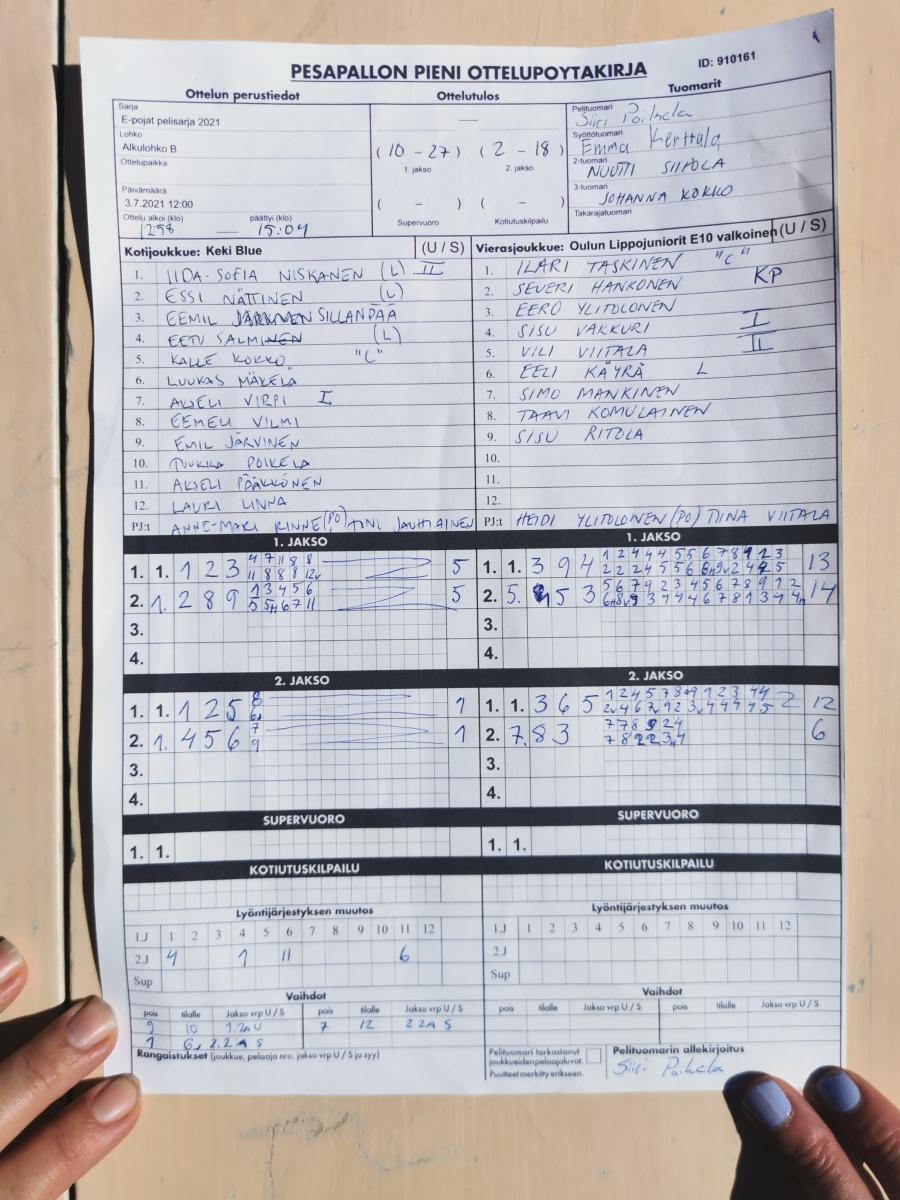 PESAPALLON PIENI OTTELUPOYTAKIRJA
ID: 910161
Ottelun perustiedot
Ottelutulos
Tuomarit
Sarja
E-pojat pelisarja 2021
Lohko
Alkulohko B
Ottelupaikka
Päivämäärä
3.7.2021 12:00
Ottelu alkoi (klo) päättyi (klo)
1258 — 15:04
—
(10 - 27) (2 - 18)
1. jakso 2. jakso
( - ) ( - )
Supervuoro Kotiutuskilpailu
Pelituomari
Siiri Poikela
Syöttötuomari
Emma Kerttula
2-tuomari
NUUTTI SIIPOLA
3-tuomari
JOHANNA KOKKO
Takarajatuomari
Kotijoukkue: Keki Blue (U / S)
1. IIDA-SOFIA NISKANEN (L) II
2. ESSI NÄTTINEN (L)
3. EEMIL SILLANPÄÄ
4. EETU SALMINEN (L)
5. KALLE KOKKO "C"
6. LUUKAS MÄKELÄ
7. AKSELI VIRPI I
8. EEMELI VILMI
9. EMIL JÄRVINEN
10. TUUKKA POIKELA
11. AKSELI PÄÄKKÖNEN
12. LAURI LINNA
PJ:t ANNE-MARI RINNE (PO) TINI JAUHIAINEN
Vierasjoukkue: Oulun Lippojuniorit E10 valkoinen (U / S)
1. ILARI TASKINEN "C"
2. SEVERI HANKONEN KP
3. EERO YLITOLONEN
4. SISU VAKKURI I
5. VILI VIITALA II
6. EELI KÄYRÄ L
7. SIMO MANKINEN
8. TAAVI KOMULAINEN
9. SISU RITOLA
10.
11.
12.
PJ:t HEIDI YLITOLONEN (PO) TIINA VIITALA
1. JAKSO
1. 1. 1 2 3 5
2. 1. 2 8 9 5
3.
4.
1. JAKSO
1. 1. 3 9 4 13
2. 5. 5 3 14
3.
4.
2. JAKSO
1. 1. 1 2 5 1
2. 1. 4 5 6 1
3.
4.
2. JAKSO
1. 1. 3 6 5 12
2. 7. 8 3 6
3.
4.
SUPERVUORO
1. 1.
SUPERVUORO
1. 1.
KOTIUTUSKILPAILU
KOTIUTUSKILPAILU
Lyöntijärjestyksen muutos
1.J 1 2 3 4 5 6 7 8 9 10 11 12
2.J 4 1 11 6
Sup
Lyöntijärjestyksen muutos
1.J 1 2 3 4 5 6 7 8 9 10 11 12
2.J
Sup
Vaihdot
pois tilalle Jakso vrp U / S pois tilalle Jakso vrp U / S
9 10 1.2A U 7 12 2 2A S
1 6 2.2 A S
Vaihdot
pois tilalle Jakso vrp U / S pois tilalle Jakso vrp U / S
Rangaistukset (joukkue, pelaaja nro, jakso vrp U / S ja syy)
Pelituomari tarkastanut
joukkueidenpelaajaluvat.
Puutteet merkitty erikseen.
Pelituomarin allekirjoitus
Siiri Poikela